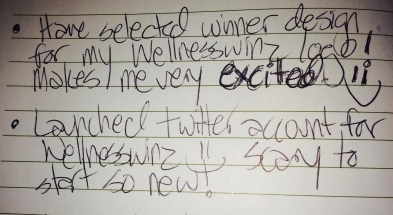 • Have selected winner design
for my Wellnesswinz logo!
Makes me very excited. !!
• Launched twitter account for
Wellnesswinz !! scary to
start so new!